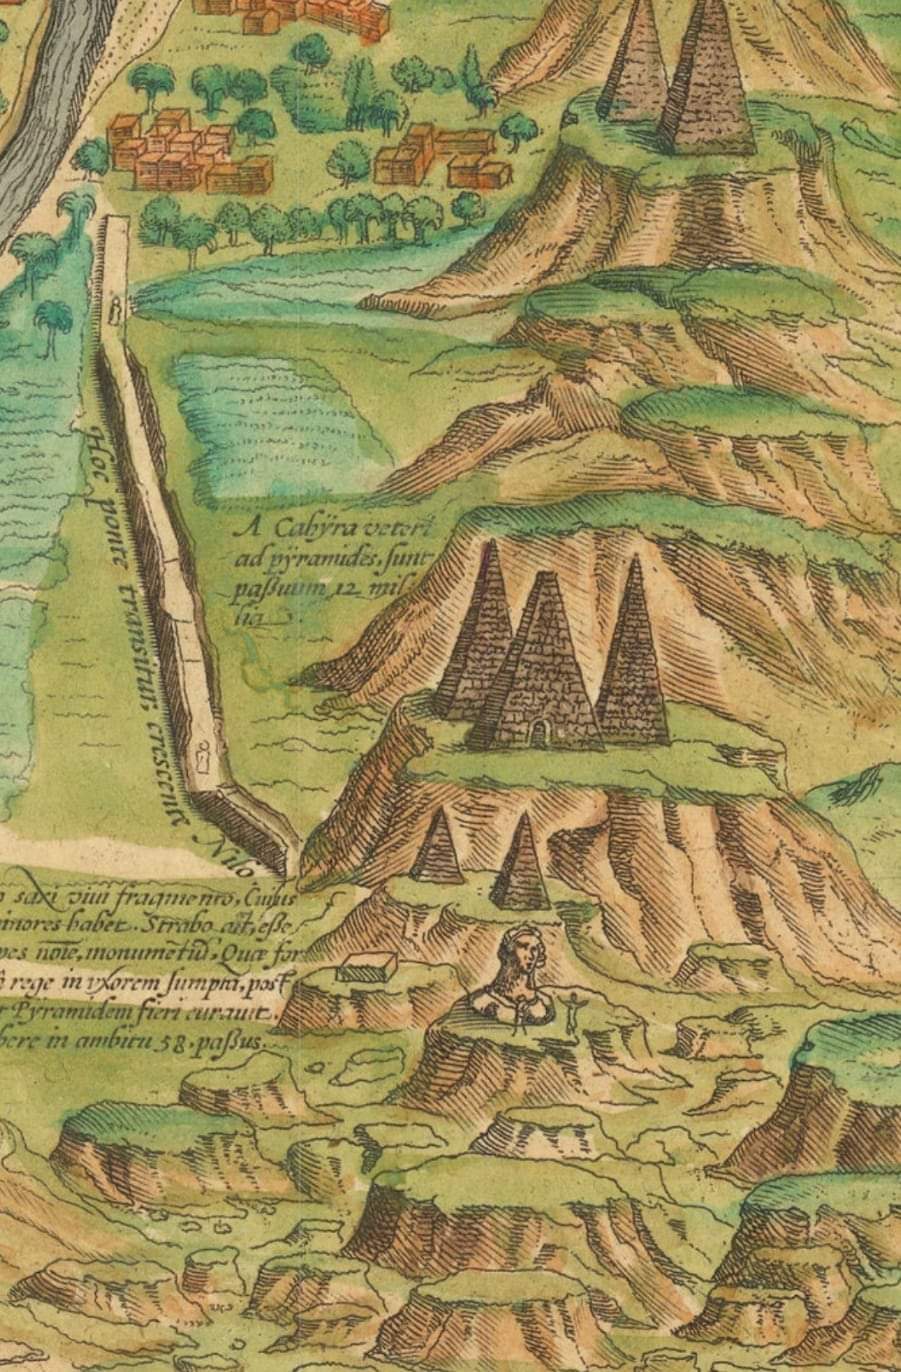 Hoc ponte transitur, crescente Nilo
A Cahÿra veteri
ad pÿramides, sunt
paſsuum 12 mil⸗
lia
saxi viui fragmento, Cuius
minores habet. Strabo ait, eſse
monumētū, Quæ for
rege in vxorem sumpta, post
Pÿramidem fieri curauit.
bere in ambitu 58. paſsus.